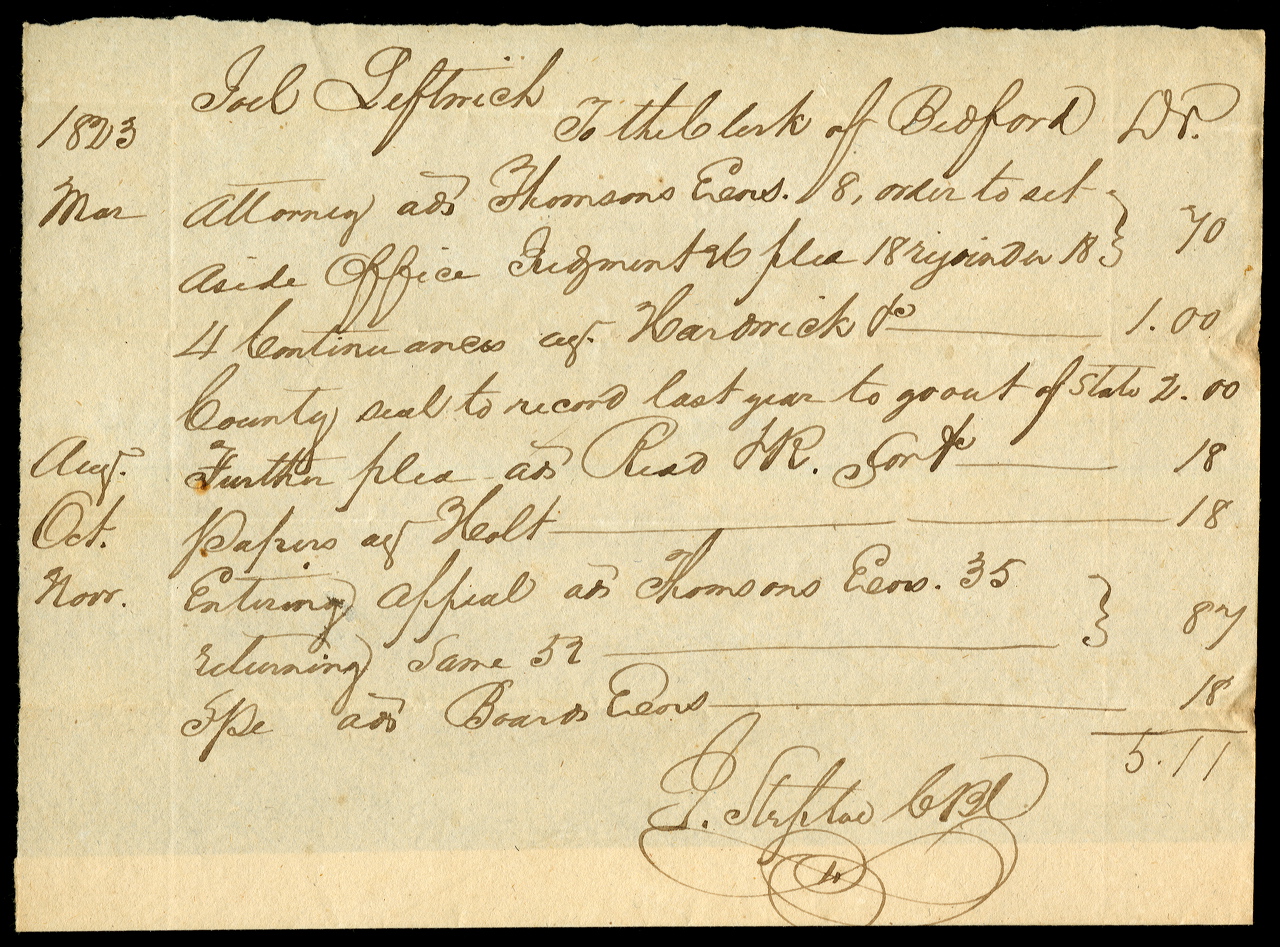 Joel Leftwich
1823 To the Clerk of Bedford Dr.
Mar Attorney ads Thomsons Exors. 18, order to set
aside Office Judgment 16 plea 18 rejoinder 18 } 70
4 Continuances agt. Hardwick &c 1.00
County seal to record last year to go out of State 2.00
Augt. Further plea ads Read &c 18
Oct. papers agt Holt 18
Novr. Entering appeal ads Thomsons Exors. 35
returning Same 52 } 87
Spa ads Boards Exors 18
5.11
J. Steptoe CBC